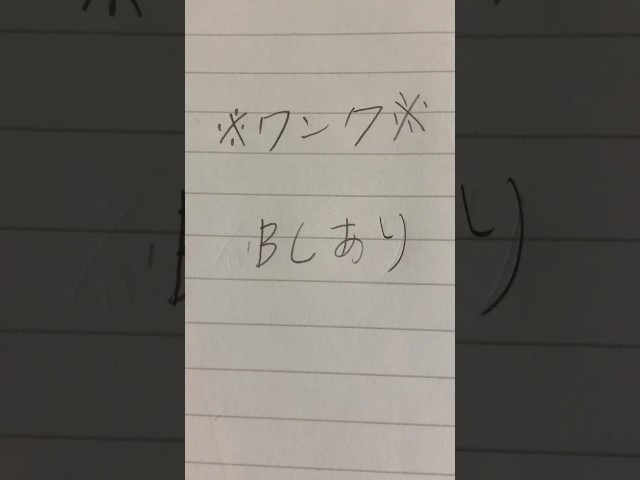 ※ワンク※
BLあり